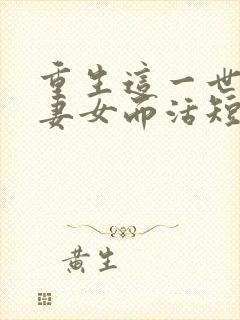 重生這一世
妻女而活短
黃生